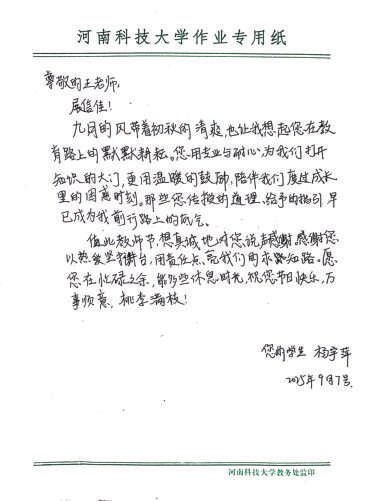 河南科技大学作业专用纸
尊敬的王老师，
展信佳！
九月的风带着初秋的清爽，也让我想起您在教
育路上的默默耕耘。您用专业与耐心，为我们打开
知识的大门，更用温暖的鼓励，陪伴我们度过成长
里的困惑时刻。那些您传授的道理、给予的指引早
已成为我前行路上的底气。
值此教师节，想真诚地对您说声感谢。感谢您
以热爱坐讲台，用责任点亮我们的求知路。愿
您在忙碌之余，能多些休息时光，祝您节日快乐，万
事顺意，桃李满枝！
您的学生 杨宇萍
2025年9月7号
河南科技大学教务处监印